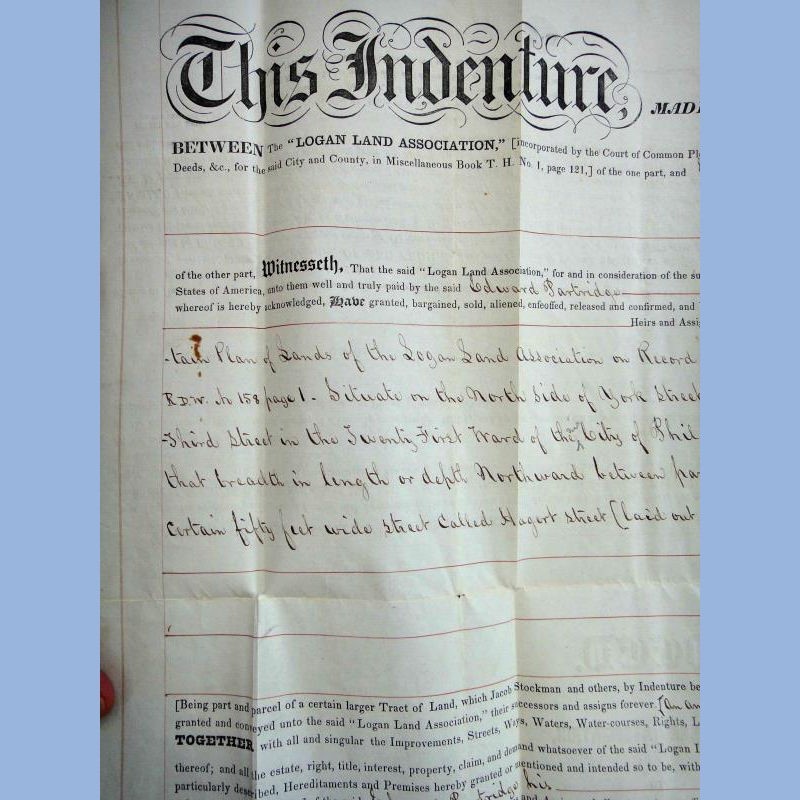 This Indenture, MAD
BETWEEN The "LOGAN LAND ASSOCIATION," [incorporated by the Court of Common Pl
Deeds, &c., for the said City and County, in Miscellaneous Book T. H. No. 1, page 121,] of the one part, and
of the other part, Witnesseth, That the said "Logan Land Association," for and in consideration of the su
States of America, unto them well and truly paid by the said Edward Partridge
whereof is hereby acknowledged, Have granted, bargained, sold, aliened, enfeoffed, released and confirmed, and
Heirs and Assig
-tain Plan of Lands of the Logan Land Association on Record
R.D.W. No 158 page 1. Situate on the North Side of York Street
Third Street in the Twenty First Ward of the City of Phil
that breadth in length or depth Northward between pa
certain fifty feet wide street called Hagert street [laid out
[Being part and parcel of a certain larger Tract of Land, which Jacob Stockman and others, by Indenture be
granted and conveyed unto the said "Logan Land Association," their successors and assigns forever. [
TOGETHER with all and singular the Improvements, Streets, Ways, Waters, Water-courses, Rights, L
thereof; and all the estate, right, title, interest, property, claim, and demand whatsoever of the said "Logan L
particularly described, Hereditaments and Premises hereby granted or mentioned and intended so to be, with
Partridge his